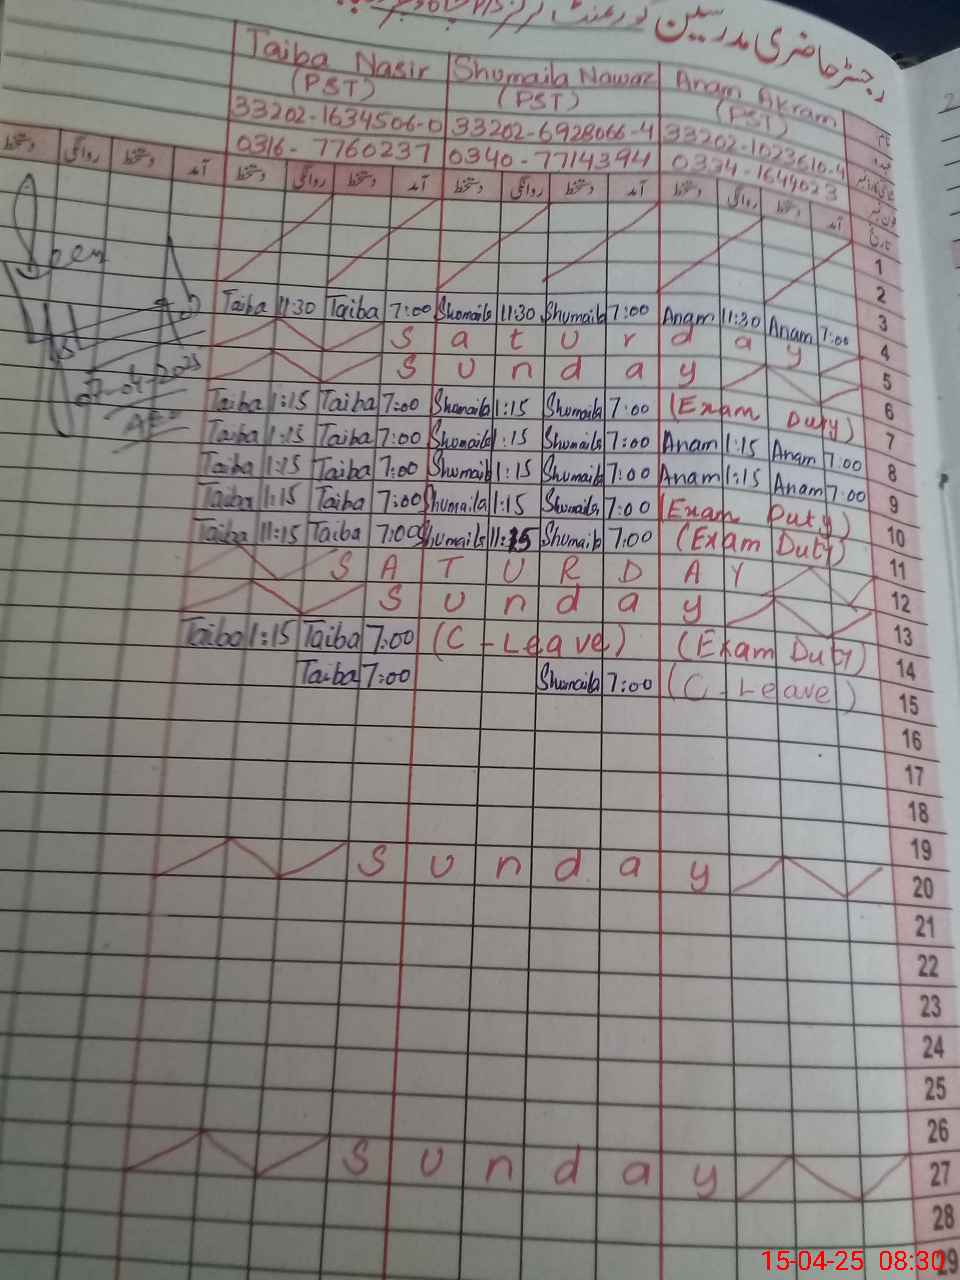 رجسٹر حاضری مدرسین گورنمنٹ
Taiba Nasir Shumaila Nawaz Anam Akram
(PST) (PST) (PST)
33202-1634506-0 33202-6928066-4 33202-1023610-4
0316-7760237 0340-7714394 0334-1644023
دستخط روانگی دستخط آمد دستخط روانگی دستخط آمد دستخط روانگی دستخط آمد دستخط روانگی دستخط آمد تاریخ
1
2
Taiba 11:30 Taiba 7:00 Shumaila 11:30 Shumaila 7:00 Anam 11:30 Anam 7:00 3
Saturday 4
Sunday 5
Taiba 1:15 Taiba 7:00 Shumaila 1:15 Shumaila 7:00 (Exam Duty) 6
Taiba 1:15 Taiba 7:00 Shumaila 1:15 Shumaila 7:00 Anam 1:15 Anam 7:00 7
Taiba 1:15 Taiba 7:00 Shumaila 1:15 Shumaila 7:00 Anam 1:15 Anam 7:00 8
Taiba 1:15 Taiba 7:00 Shumaila 1:15 Shumaila 7:00 (Exam Duty) 9
Taiba 11:15 Taiba 7:00 Shumaila 11:15 Shumaila 7:00 (Exam Duty) 10
SATURDAY 11
Sunday 12
Taiba 1:15 Taiba 7:00 (C-Leave) (Exam Duty) 13
Taiba 7:00 Shumaila 7:00 (C-Leave) 14
15
16
17
18
19
Sunday 20
21
22
23
24
25
26
Sunday 27
28
29
15-04-25 08:30